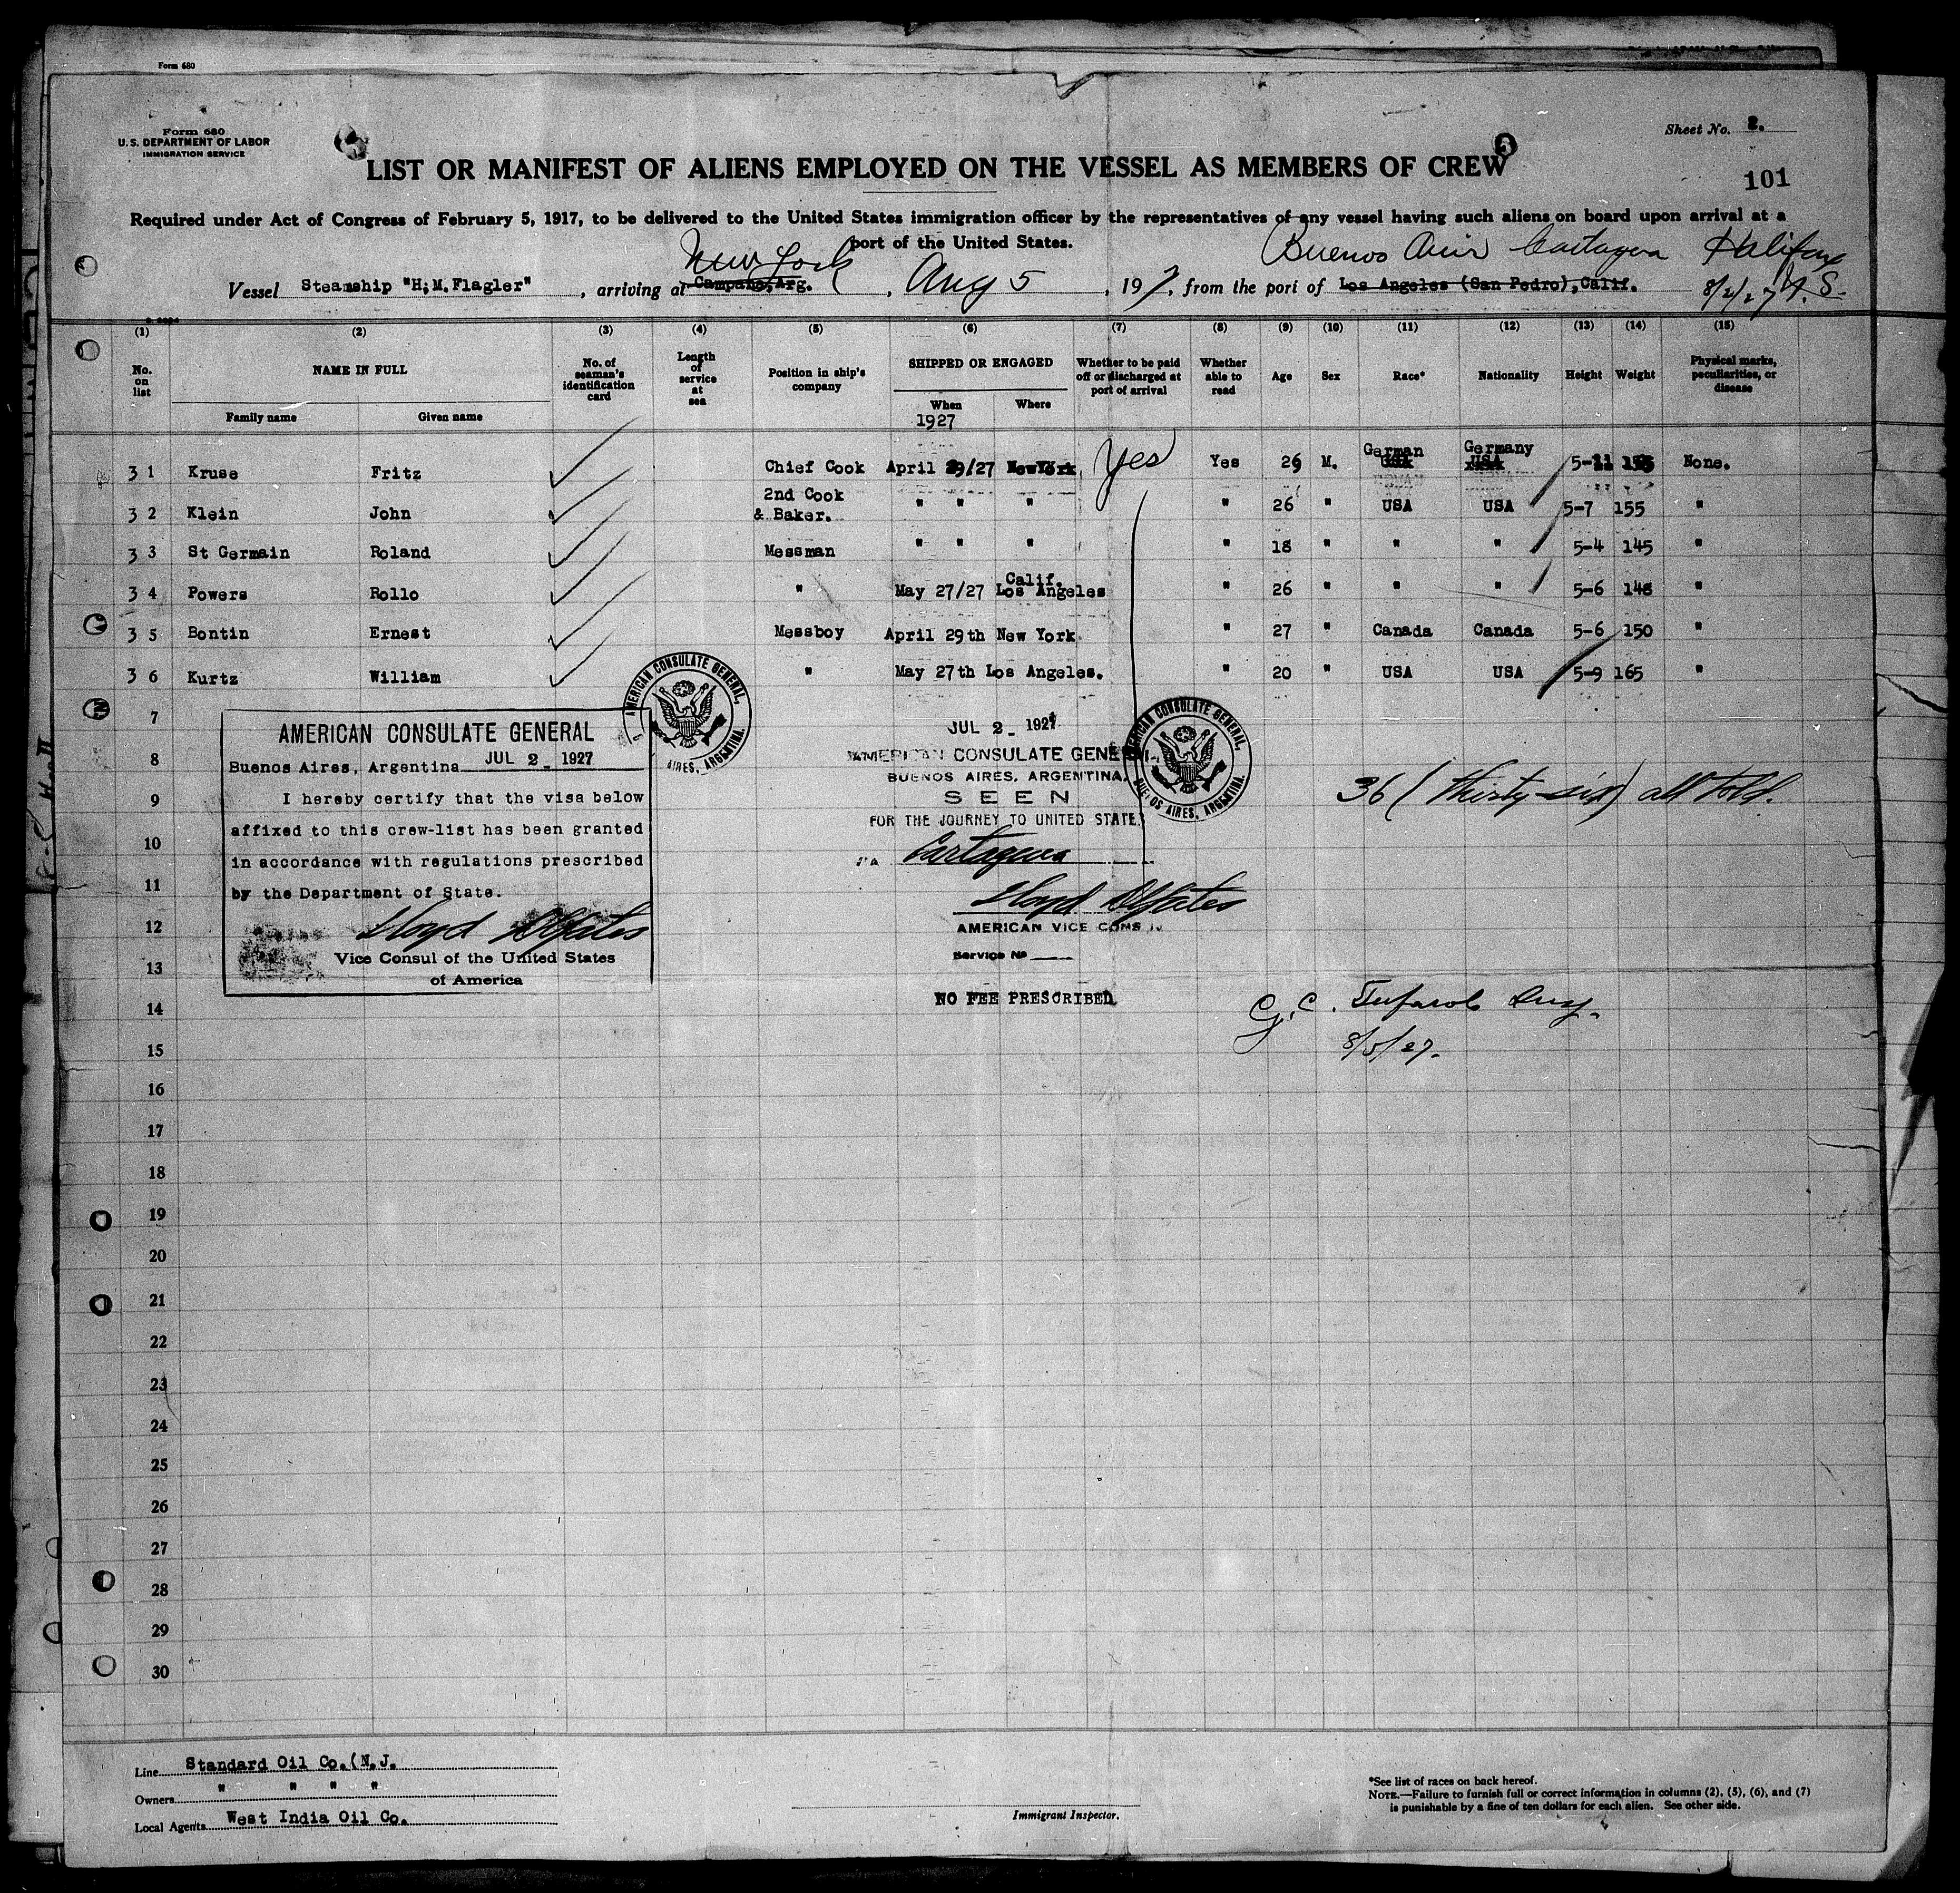 Form 680
Form 680
U.S. DEPARTMENT OF LABOR
IMMIGRATION SERVICE
Sheet No. 2.
LIST OR MANIFEST OF ALIENS EMPLOYED ON THE VESSEL AS MEMBERS OF CREW
101
Required under Act of Congress of February 5, 1917, to be delivered to the United States immigration officer by the representatives of any vessel having such aliens on board upon arrival at a
port of the United States.
New York Buenos Aires Cartagena Halifax
Vessel Steamship "H.M.Flagler", arriving at Campana, Arg., Aug 5, 1927, from the port of Los Angeles (San Pedro), Calif. 8/2/27 N.S.
(1) (2) (3) (4) (5) (6) (7) (8) (9) (10) (11) (12) (13) (14) (15)
No. on list NAME IN FULL No. of seaman's identification card Length of service at sea Position in ship's company SHIPPED OR ENGAGED Whether to be paid off or discharged at port of arrival Whether able to read Age Sex Race* Nationality Height Weight Physical marks, peculiarities, or disease
Family name Given name When Where
1927
31 Kruse Fritz Chief Cook April 29/27 New York Yes Yes 26 M. German Germany USA 5-11 None.
32 Klein John 2nd Cook & Baker. " " " " 26 " USA USA 5-7 155 "
33 St Germain Roland Messman " " " " 18 " " " 5-4 145 "
34 Powers Rollo " May 27/27 Los Angeles Calif. " 26 " " " 5-6 148 "
35 Bontin Ernest Messboy April 29th New York " 27 " Canada Canada 5-6 150 "
36 Kurtz William " May 27th Los Angeles. " 20 " USA USA 5-9 165 "
7
8
9
10
11
12
13
14
15
16
17
18
19
20
21
22
23
24
25
26
27
28
29
30
AMERICAN CONSULATE GENERAL
Buenos Aires, Argentina JUL 2 - 1927
I hereby certify that the visa below
affixed to this crew-list has been granted
in accordance with regulations prescribed
by the Department of State.
Vice Consul of the United States
of America
AMERICAN CONSULATE GENERAL,
AIRES, ARGENTINA.
JUL 2 - 1927
AMERICAN CONSULATE GENE
BUENOS AIRES, ARGENTINA.
SEEN
FOR THE JOURNEY TO UNITED STATE
VIA Cartagena
AMERICAN VICE CONS
Service No
NO FEE PRESCRIBED
AMERICAN CONSULATE GENERAL,
BUENOS AIRES, ARGENTINA.
36 (thirty-six) all told.
8/5/27.
Line Standard Oil Co.(N.J.
Owners " " " "
Local Agents West India Oil Co.
Immigrant Inspector.
*See list of races on back hereof.
NOTE.—Failure to furnish full or correct information in columns (2), (5), (6), and (7)
is punishable by a fine of ten dollars for each alien. See other side.